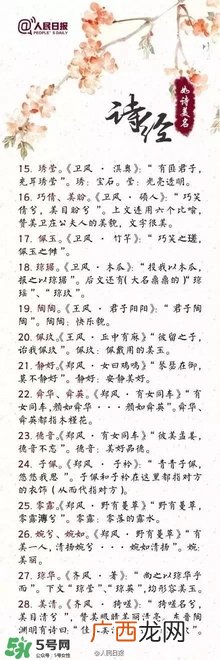 @人民日报
PEOPLE'S DAILY
如诗美名
诗经
15. 琇莹。《卫风 · 淇奥》："有匪君子，
充耳琇莹"。琇：宝石。莹：光亮透明。
16. 巧倩、美盼。《卫风 · 硕人》："巧笑
倩兮，美目盼兮"。上文连用六个比喻，
赞美卫公夫人的美貌，文字很美。
17. 佩玉。《卫风 · 竹竿》："巧笑之瑳，
佩玉之傩"。
18. 琼瑶。《卫风 · 木瓜》："投我以木瓜，
报之以琼瑶"。后文还有(大名鼎鼎的)"琼
瑶"、"琼玖"。
19. 陶陶。《王风 · 君子阳阳》："君子陶
陶"。陶陶：快乐貌。
20. 佩玖。《王风 · 丘中有麻》"彼留之子，
诒我佩玖"。佩玖：佩戴用的美玉。
21. 静好。《郑风 · 女曰鸡鸣》"琴瑟在御，
莫不静好"。静好：安静美好。
22. 舜华、舜英。《郑风 · 有女同车》"有
女同车，颜如舜华 · · · · · · 颜如舜英"。舜
华、舜英都指木槿花。
23. 德音。《郑风 · 有女同车》"彼美孟姜，
德音不忘"。德音：美好品德。
24. 子佩。《郑风 · 子衿》"青青子佩，
悠悠我思"。子佩和子衿在这里都指对方
的衣饰（从而代指对方）。
25. 零露。《郑风 · 野有蔓草》"野有蔓草，
零露漙兮"。零露：零落的露水。
26. 婉兮、婉如。《郑风 · 野有蔓草》"有
美一人，清扬婉兮 · · · · · · 婉如清扬"。婉，
美丽。
27. 琼华。《齐风 · 著》"尚之以琼华乎
而"。下文"琼莹"、"琼英"，均形容美玉。
28. 美清。《齐风 · 猗嗟》"猗嗟名兮，
美目清兮"，赞美眼睛美丽清亮。东晋陶
渊明有诗曰：
5号网
公众号：5号女性
广西龙网
@人民日报